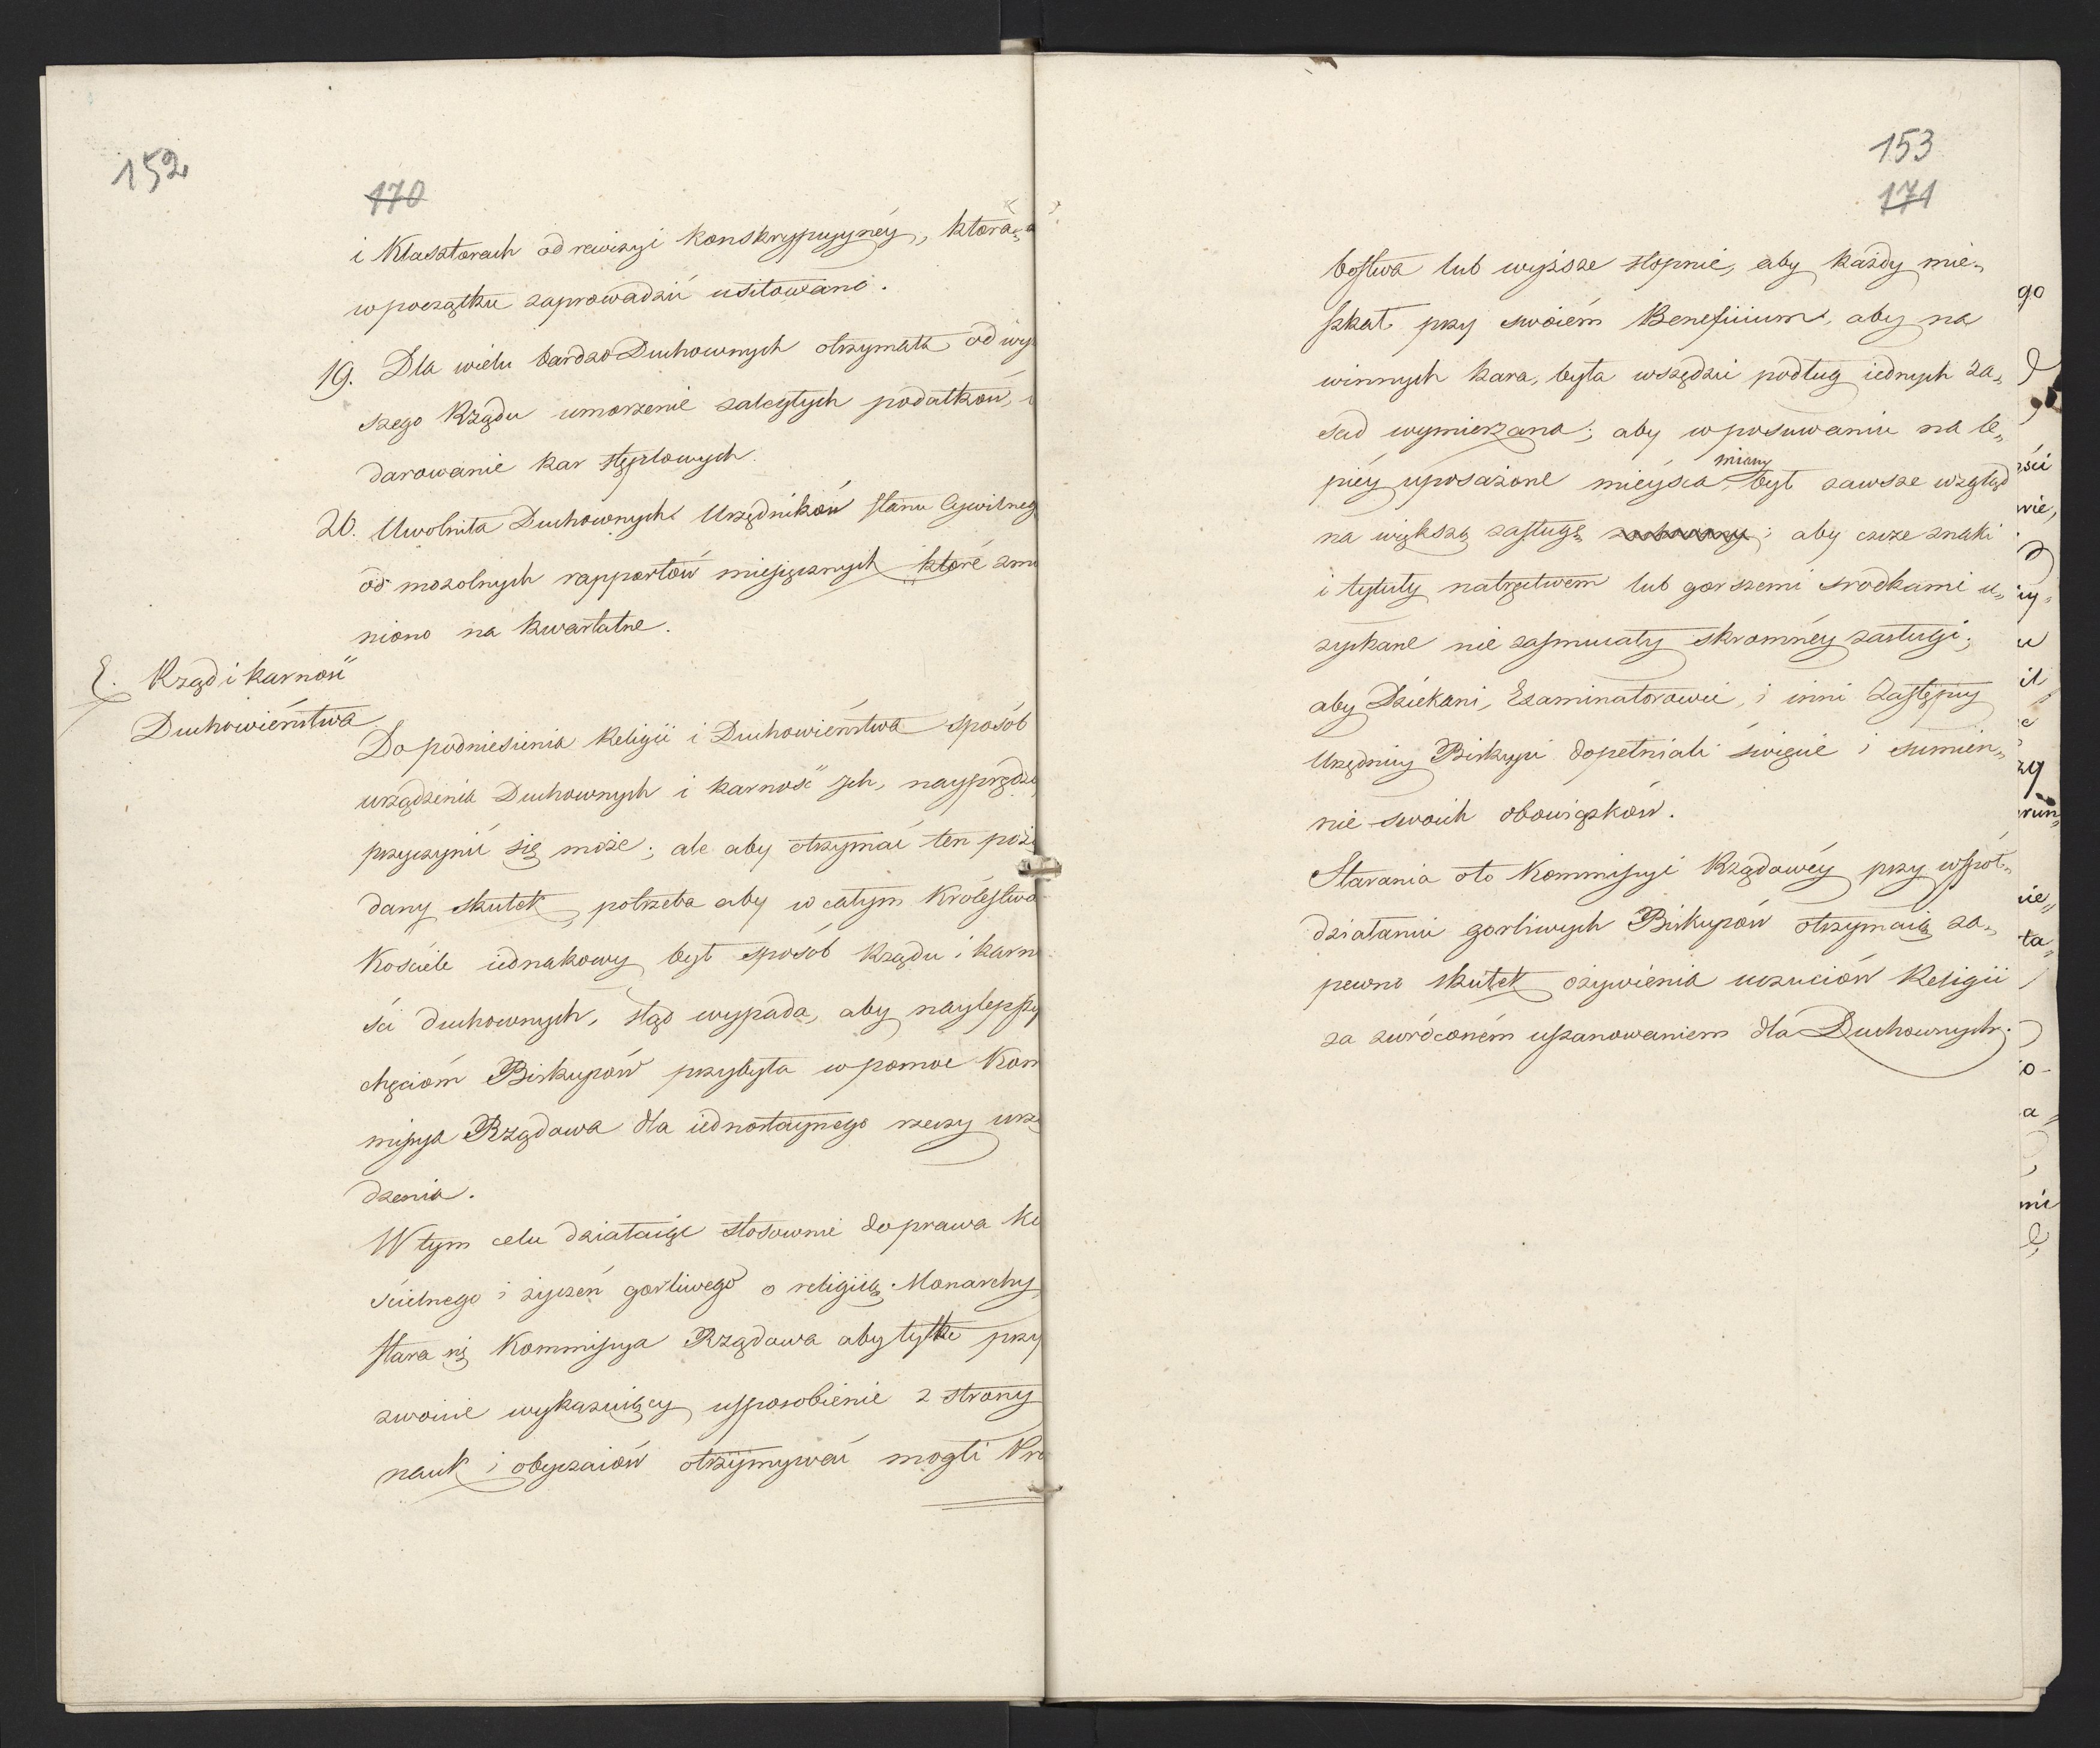 152
170
i Klasztorach od rewizyi konskrypcyynéy, którą
w początku zaprowadzić usiłowano.
19. Dla wielu bardzo Duchownych otrzymała od wy
szego Rządu umorzenie zaległych podatków,
darowanie kar stęplowych.
20. Uwolniła Duchownych Urzędników stanu Cywilneg
od mozolnych rapportów miesięcznych które zmi
niono na kwartalne.
E. Rząd i karność
Duchowieństwa
Do podniesienia Religii i Duchowieństwa sposób
urządzenia Duchownych i karność ich, nayprędzé
przyczynić się może; ale aby otrzymać ten pożą
dany skutek, potrzeba aby w całym Królestwa
Kościele iednakowy był sposób Rządu i karno
ści duchownych, stąd wypada, aby naylepszy
chęciom Biskupów przybyła w pomoc Kom
missya Rządowa dla iednostaynego rzeczy urzą
dzenia.
W tym celu działaiąc stosownie do prawa Ko
ścielnego i życzeń gorliwego o religiią Monarchy
stara się Kommissya Rządowa aby tylko przy
zwoicie wykazuiący usposobienie z strony
nauk i obyczaiów otrzymywać mogli Pro
153
171
bostwa lub wyższe stopnie, aby każdy mie„
szkał przy swoiém Beneficium, aby na
winnych kara, była wszędzie podług iednych za„
sad wymierzana; aby w posuwaniu na le„
piéy uposażone mieysca miany był zawsze wzgląd
na większą zasługę zachowany; aby czcze znaki
i tytuły natręctwem lub gorszemi srodkami u„
zyskane nie zasmucały skromnéy zasługi;
aby Dziekani, Examinatorowie, i inni Zastępcy
Urzędnicy Biskupi dopełniali święcie i sumien„
nie swoich obowiązków.
Starania oto Kommissyi Rządowéy przy wspól„
działaniu gorliwych Biskupów otrzymaią za„
pewne skutek ożywienia uczuciów Religii
za zwróconém uszanowaniem dla Duchownych.